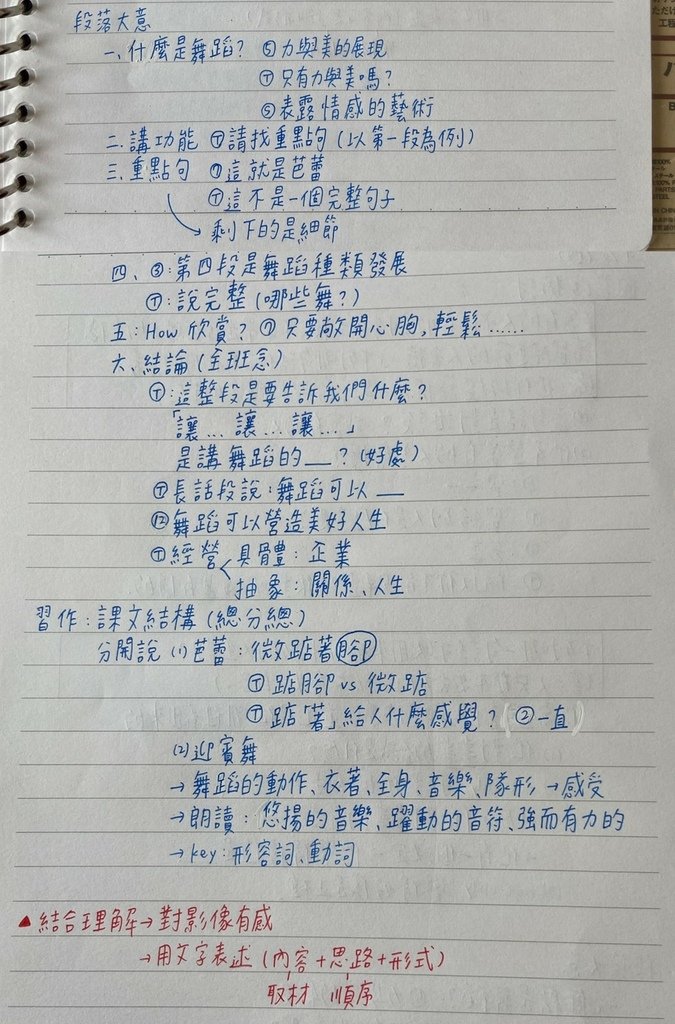 段落大意
一、什麼是舞蹈? ⑤力與美的展現
Ⓣ只有力與美嗎?
⑤表露情感的藝術
二、講功能 Ⓣ請找重點句(以第一段為例)
三、重點句 ⑦這就是芭蕾
Ⓣ這不是一個完整句子
剩下的是細節
四、③:第四段是舞蹈種類發展
Ⓣ:說完整(哪些舞?)
五:How 欣賞? ⑦只要敞開心胸,輕鬆……
六、結論(全班念)
Ⓣ:這整段是要告訴我們什麼?
「讓…讓…讓…」
是講舞蹈的__?(好處)
Ⓣ長話段說:舞蹈可以__
⑫舞蹈可以營造美好人生
Ⓣ經營<具體:企業
抽象:關係、人生
習作:課文結構(總分總)
分開說 (1)芭蕾:微踮著腳
Ⓣ踮腳 vs 微踮
Ⓣ踮「著」給人什麼感覺?(②一直)
(2)迎賓舞
→舞蹈的動作、衣著、全身、音樂、隊形→感受
→朗讀:悠揚的音樂、躍動的音符、強而有力的
→key:形容詞、動詞
▲結合理解→對影像有感
→用文字表述(內容+思路+形式)
取材 順序